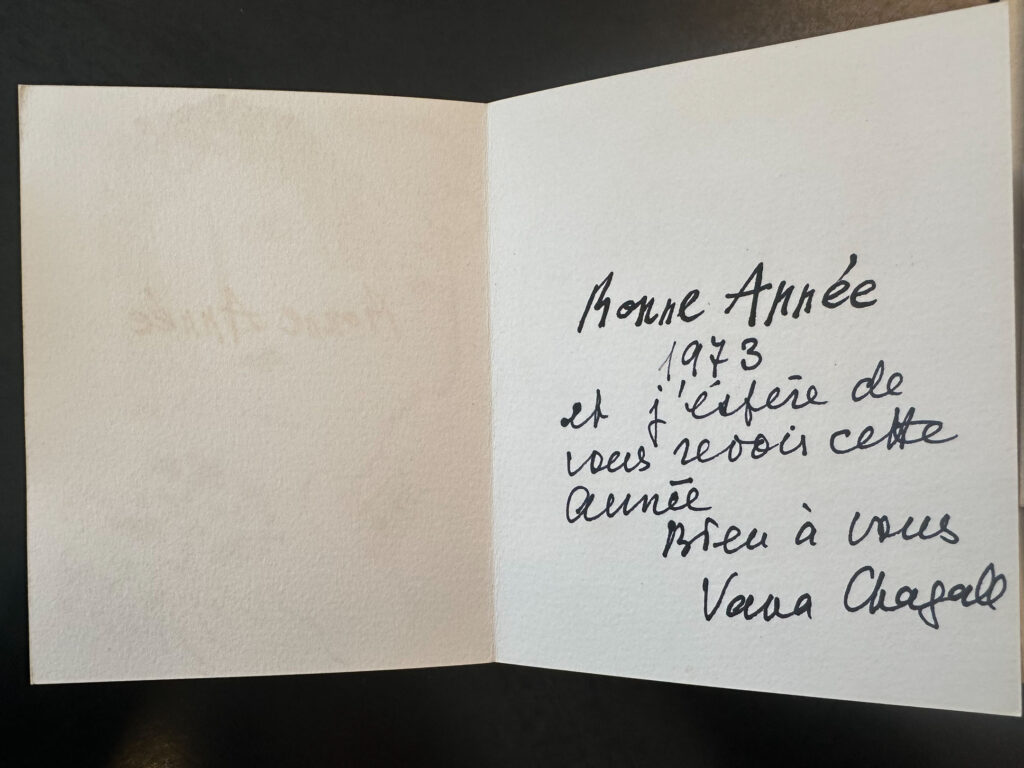 Bonne Année
1973
et j'éspère de
vous revoir cette
année
Bien à vous
Vava Chagall